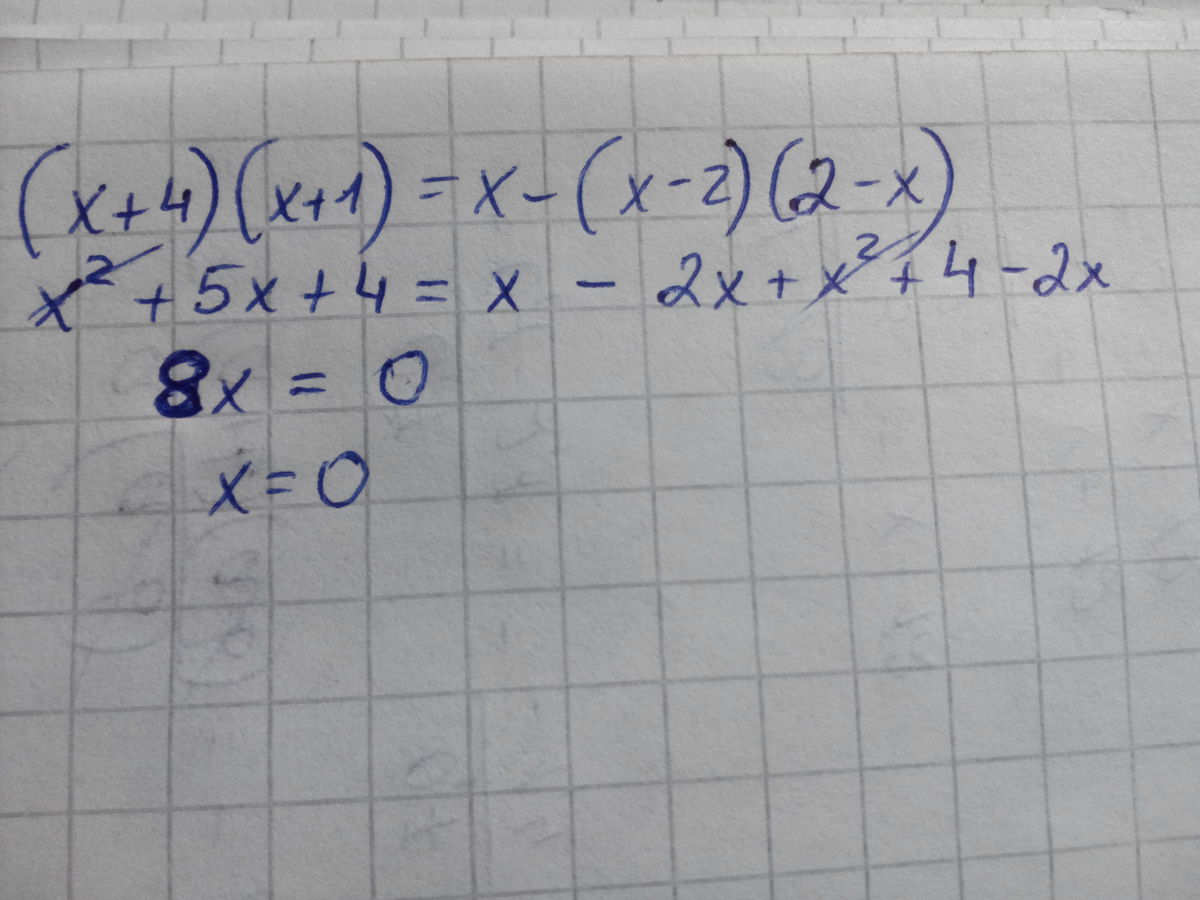 (x+4)(x+1) = x - (x-2)(2-x)
x² + 5x + 4 = x - 2x + x² + 4 - 2x
8x = 0
x = 0